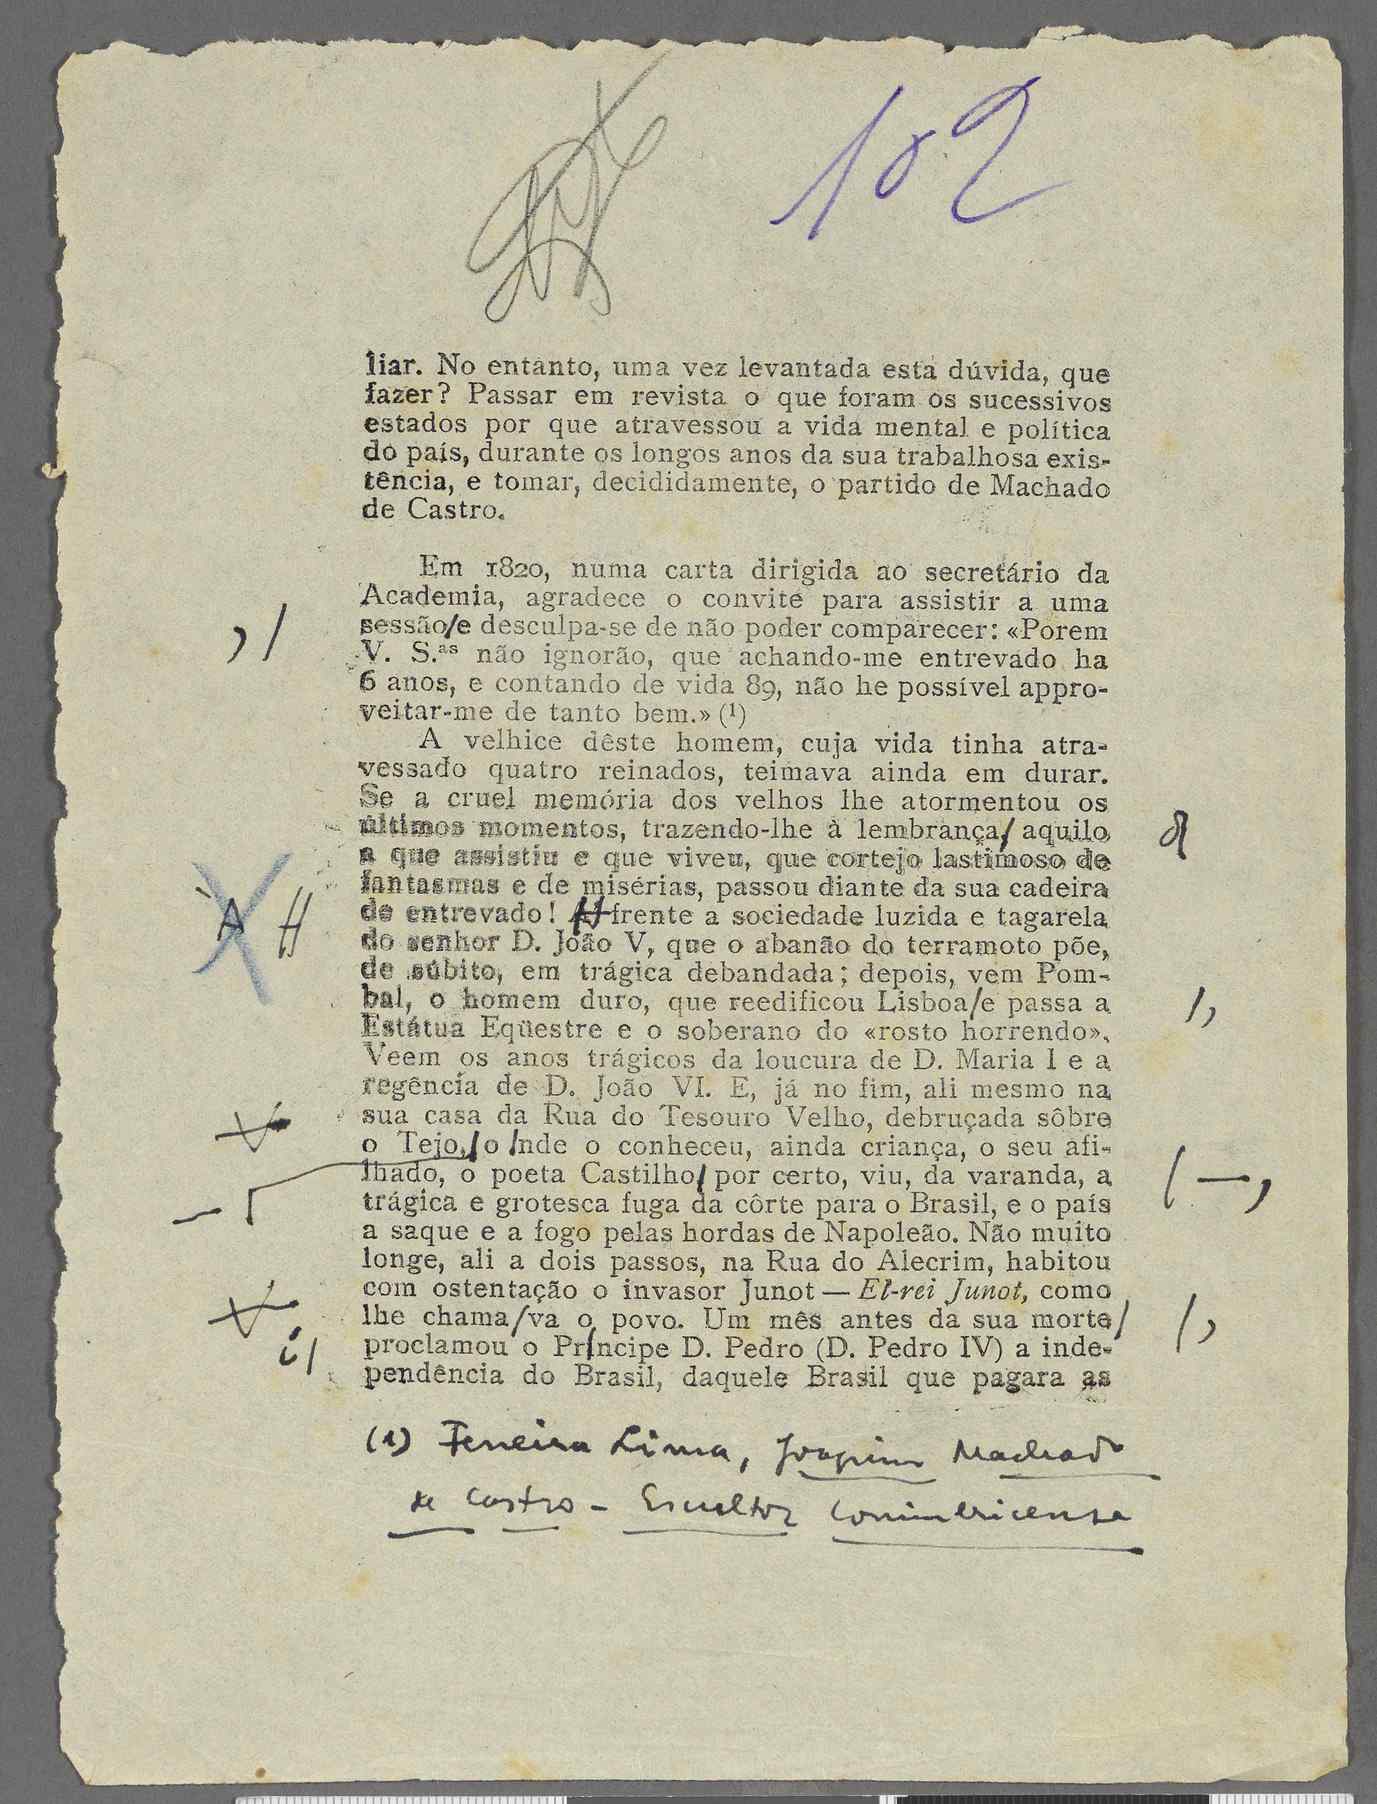 102
liar. No entanto, uma vez levantada esta dúvida, que
fazer? Passar em revista o que foram os sucessivos
estados por que atravessou a vida mental e política
do país, durante os longos anos da sua trabalhosa exis-
tência, e tomar, decididamente, o partido de Machado
de Castro.
Em 1820, numa carta dirigida ao secretário da
Academia, agradece o convite para assistir a uma
, / sessão/e desculpa-se de não poder comparecer: «Porem
V. S.ªˢ não ignorão, que achando-me entrevado ha
6 anos, e contando de vida 89, não he possível appro-
veitar-me de tanto bem.» (¹)
A velhice dêste homem, cuja vida tinha atra-
vessado quatro reinados, teimava ainda em durar.
Se a cruel memória dos velhos lhe atormentou os
últimos momentos, trazendo-lhe à lembrança/ aquilo
a que assistiu e que viveu, que cortejo lastimoso de
fantasmas e de misérias, passou diante da sua cadeira
À H de entrevado! frente a sociedade luzida e tagarela
do senhor D. João V, que o abanão do terramoto põe,
de súbito, em trágica debandada; depois, vem Pom-
bal, o homem duro, que reedificou Lisboa/e passa a /,
Estátua Eqüestre e o soberano do «rosto horrendo».
Veem os anos trágicos da loucura de D. Maria I e a
regência de D. João VI. E, já no fim, ali mesmo na
sua casa da Rua do Tesouro Velho, debruçada sôbre
o Tejo,/o/nde o conheceu, ainda criança, o seu afi-
lhado, o poeta Castilho/ por certo, viu, da varanda, a / —,
trágica e grotesca fuga da côrte para o Brasil, e o país
a saque e a fogo pelas hordas de Napoleão. Não muito
longe, ali a dois passos, na Rua do Alecrim, habitou
com ostentação o invasor Junot — El-rei Junot, como
lhe chama/va o povo. Um mês antes da sua morte/ /,
i/ proclamou o Pr/ncipe D. Pedro (D. Pedro IV) a inde-
pendência do Brasil, daquele Brasil que pagara as
(1) Ferreira Lima, Joaquim Machado
de Castro – Escultor Conimbricense